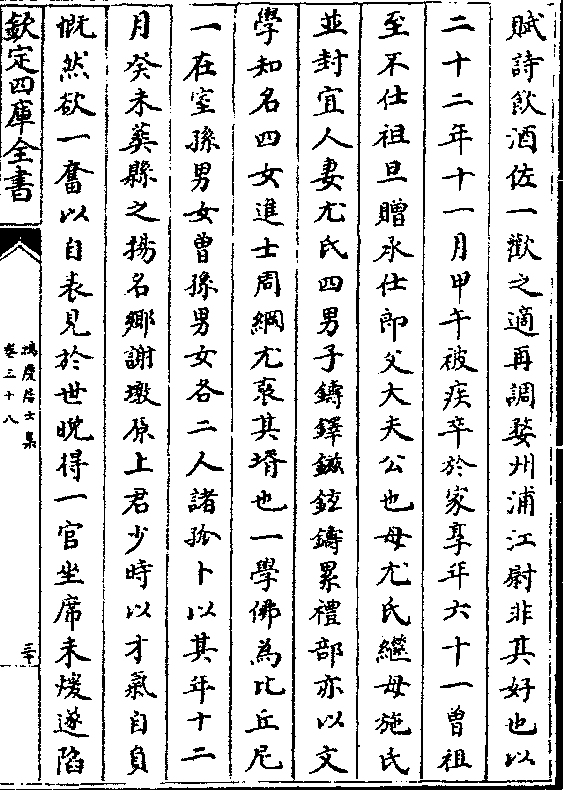 賦詩飲酒佐一歡之適再調婺州浦江尉非其好也以
二十二年十一月甲午被疾卒於家享年六十一曾祖
至不仕祖旦贈承仕郎父大夫公也母尤氏繼母施氏
並封宜人妻尤氏四男子鑄鐸鎡鉉鑄累禮部亦以文
學知名四女進士周綱尤裒其壻也一學佛為比丘尼
一在室孫男女曾孫男女各二人諸孤卜以其年十二
月癸未葬縣之揚名鄉謝墩原上君少時以才氣自負
慨然欲一奮以自表見於世晚得一官坐席未煖遂陷
欽定四庫全書
鴻慶居士集
卷三十八
三十